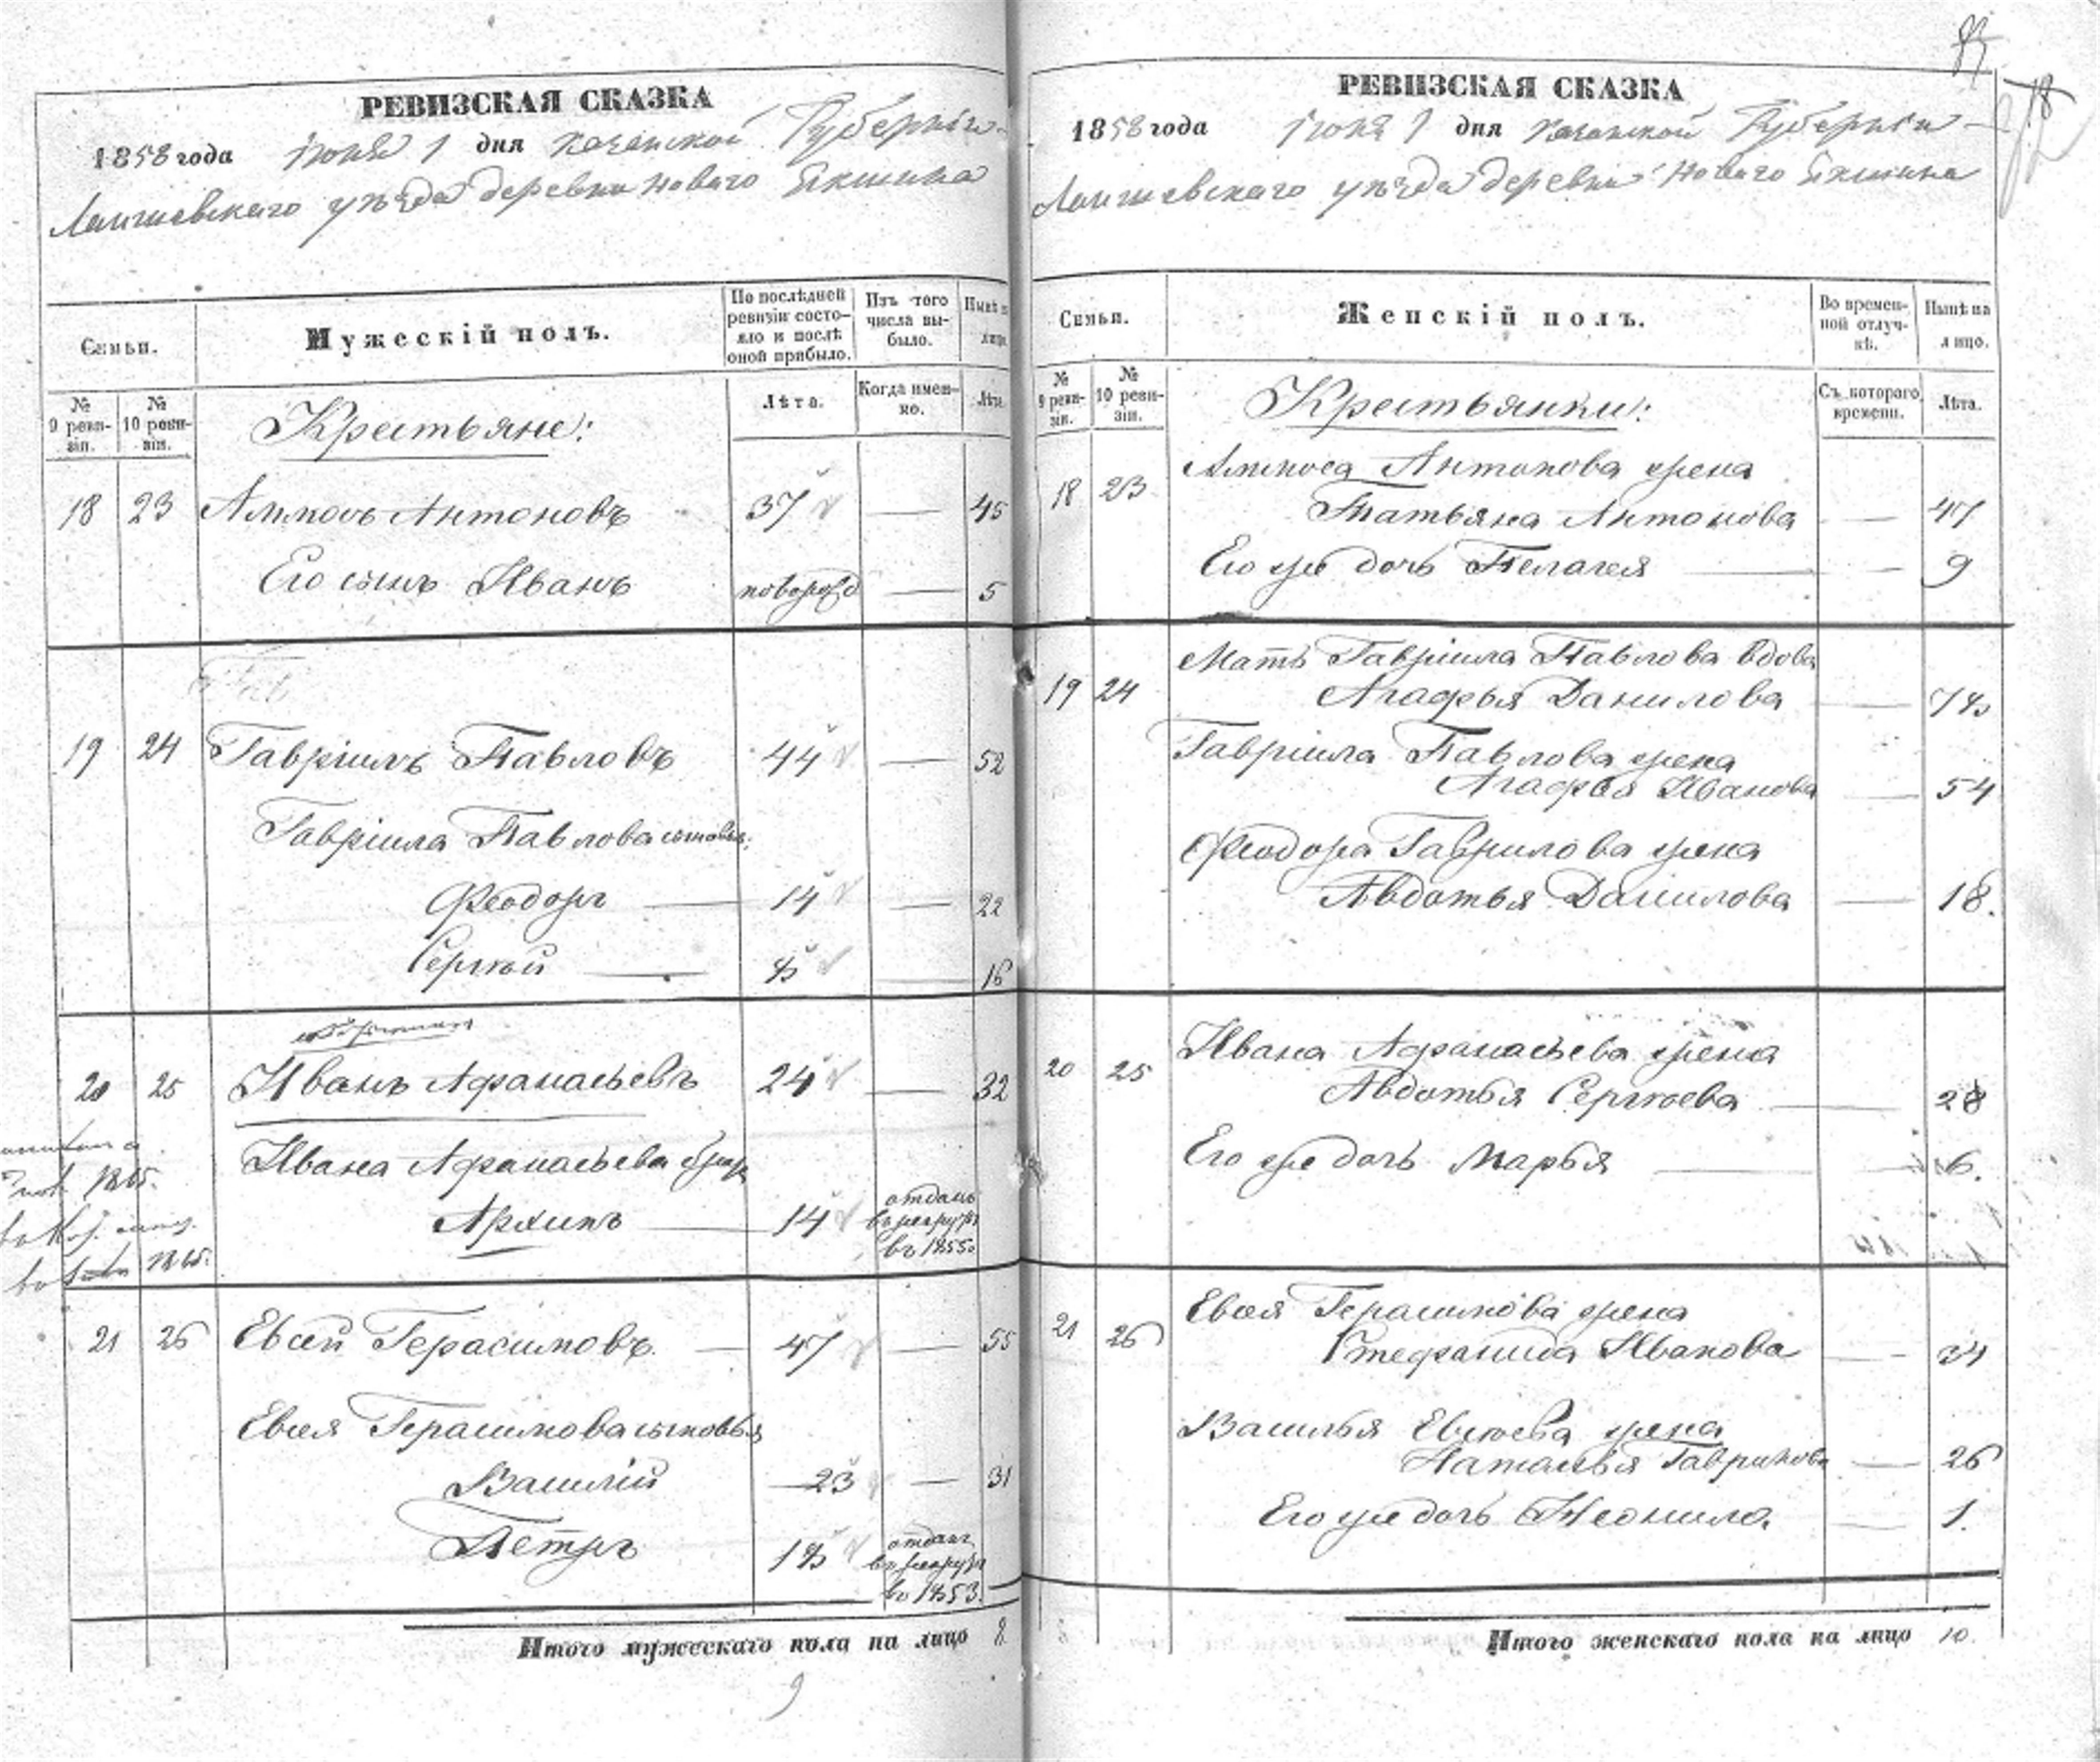 РЕВИЗСКАЯ СКАЗКА
1858 года Іюня 1 дня Казанской Губерніи
Лаишевскаго уѣзда деревни Новаго Якшина
Семьи.
Мужескій полъ.
По послѣдней ревизіи состояло и послѣ оной прибыло.
Изъ того числа выбыло.
Нынѣ на лицо.
№ 9 ревизіи.
№ 10 ревизіи.
Крестьяне:
Лѣта.
Когда именно.
Лѣта.
18 23 Антоновъ 37 — 45
Его сынъ Иванъ новорожд — 5
19 24 Гавріилъ Павловъ 44 — 52
Гавріила Павлова сыновья:
Феодоръ — 14 — 22
Сергѣй — 8 — 16
20 25 Иванъ Афанасьевъ 24 — 32
Ивана Афанасьева братъ
Архипъ — 14 отданъ въ рекруты въ 1855.
21 26 Евсей Герасимовъ — 47 — 55
Евсея Герасимова сыновья
Василій 23 — 31
Петръ 18 отданъ въ рекруты въ 1853.
Итого мужескаго пола на лицо 8
9
РЕВИЗСКАЯ СКАЗКА
1858 года Іюня 1 дня Казанской Губерніи
Лаишевскаго уѣзда деревни Новаго Якшина
Семьи.
Женскій полъ.
Во временной отлучкѣ.
Нынѣ на лицо.
№ 9 ревизіи.
№ 10 ревизіи.
Крестьянки:
Съ котораго времени.
Лѣта.
18 23 Антонова жена
Татьяна Антонова — 47
Его же дочь Пелагея — — 9
19 24 Мать Гавріила Павлова вдова
Агафья Данилова — 78
Гавріила Павлова жена
Агафья Иванова — 54
Феодора Гаврилова жена
Авдотья Данилова — 18.
20 25 Ивана Афанасьева жена
Авдотья Сергѣева — 28
Его же дочь Марья — 6.
21 26 Евсея Герасимова жена
Стефанида Иванова — 34
Василья Евсѣева жена
Наталья Гаврилова — 26
Его же дочь Неонила. — 1.
Итого женскаго пола на лицо 10.